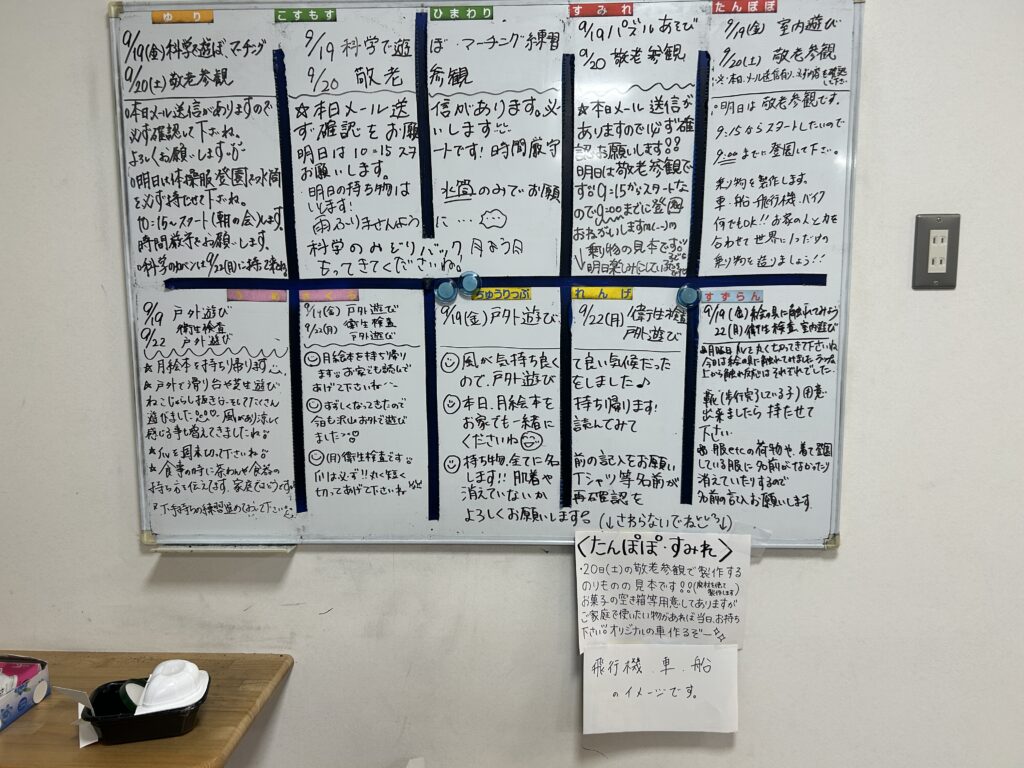 ゆり
9/19(金)科学で遊ぼ、マーチング
9/20(土)敬老参観
○本日メール送信がありますので
必ず確認して下さいね。
よろしくお願いします
○明日は体操服登園で水筒
を必ず持たせて下さいね。
10:15〜スタート(朝の会)します。
時間厳守でお願いします。
○科学のカバンは9/22(月)に持って来てね。
こすもす
ひまわり
9/19 科学で遊ぼ・マーチング練習
9/20 敬老参観
☆本日メール送信があります。必
ず確認をお願いします
明日は10:15スタートです!時間厳守
お願いします。
・明日の持ち物は水筒のみでお願
いします!
雨ふりませんように…
科学のみどりバック月よう日
もってきてくださいね。
すみれ
9/19 パズルあそび
9/20 敬老参観
☆本日メール送信が
ありますので必ず確
認お願いします!!
明日は敬老参観で
す 9:15からスタートな
ので9:00までに登園
おねがいします
乗り物の見本です
↓明日楽しみにしていて
たんぽぽ
9/19(金) 室内遊び
9/20(土) 敬老参観
※本日メール送信有り、
○明日は敬老参観です。
9:15からスタートしたいので
9:00までに登園して下さい。
乗り物を製作します。
車・船・飛行機・バイク
何でもOK!!お家の人と力を
合わせて世界に1つだけの
乗り物を造りましょう!!
9/19 戸外遊び
9/22 衛生検査
戸外遊び
★月絵本を持ち帰ります
★戸外で滑り台や芝生遊び
ねこじゃらし抜き
遊びました 風があり涼しく
感じる事も増えてきましたね
★爪を週末切って下さいね
★食事の時に茶わんや食器の
持ち方を伝えています。
さくら
9/19(金) 戸外遊び
9/22(月) 衛生検査
戸外遊び
月絵本を持ち帰り
ます お家でも読んで
あげて下さいね
すずしくなってきたので
今日も沢山お外で遊び
ました
(月)衛生検査です
爪は必ず丸く短く
切ってあげて下さいね
ちゅうりっぷ
れんげ
9/19(金)戸外遊び 9/22(月)衛生検査
戸外遊び
風が気持ち良くて良い気候だった
ので、戸外遊びをしました♪
本日、月絵本を持ち帰ります!
お家でも一緒に読んでみて
くださいね
持ち物、全てに名前の記入をお願い
します!!肌着やTシャツ等名前が
消えていないか再確認を
よろしくお願いします
すずらん
9/19(金)絵の具に触れてみよう
22(月)衛生検査、室内遊び
★月曜日爪を丸く切ってきて下さいね
今日は絵の具に触れてみました
靴(歩行完了している子)用意
出来ましたら持たせて
下さい
服etcの荷物や、着て登園
している服に名前がなかったり
消えていたりするので
名前の記入お願いします
(↓さわらないでねどころ↓)
<たんぽぽ・すみれ>
・20日(土)の敬老参観で製作する
のりものの見本です!!(廃材を使って製作します)
お菓子の空き箱等用意してありますが
ご家庭で使いたい物があれば当日、お持ち
下さい。オリジナルの車作るぞー☆
飛行機、車、船
のイメージです。